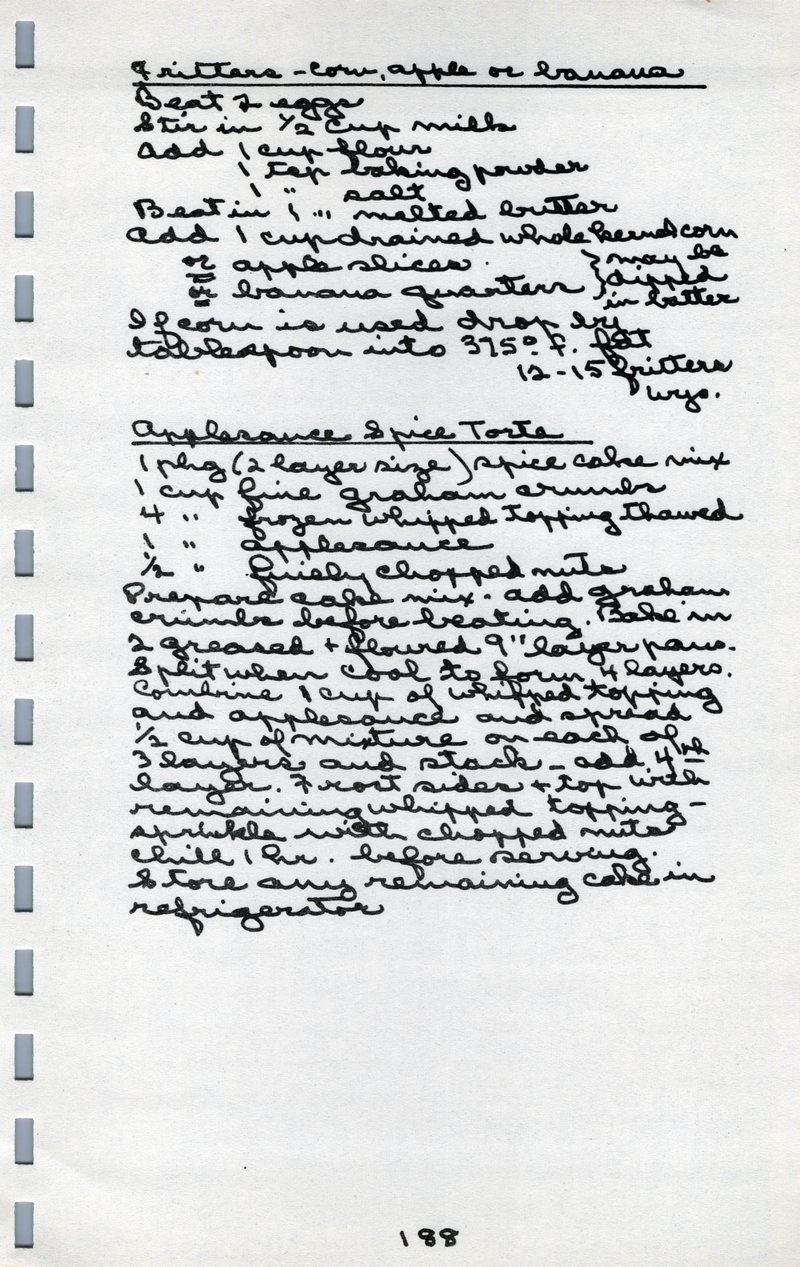 Fritters - corn, apple or banana
Beat 2 eggs
Stir in 1/2 cup milk
Add 1 cup flour
1 tsp baking powder
1 " salt
Beat in 1 " melted butter
Add 1 cup drained whole kernel corn
or apple slices. } may be
or banana quarters } dipped
in batter
If corn is used drop by
tablespoon into 375° F. fat
12-15 fritters
wys.
Applesauce Spice Torte
1 pkg (2 layer size) spice cake mix
1 cup fine graham crumbs
4 " frozen whipped topping thawed
1 " applesauce
1/2 " finely chopped nuts
Prepare cake mix. add graham
crumbs before beating. Bake in
2 greased + floured 9" layer pans.
Split when cool to form 4 layers.
Combine 1 cup of whipped topping
and applesauce and spread
1/2 cup of mixture on each of
3 layers and stack - add 4th
layer. Frost sides + top with
remaining whipped topping -
sprinkle with chopped nuts
chill 1 hr. before serving.
Store any remaining cake in
refrigerator
188